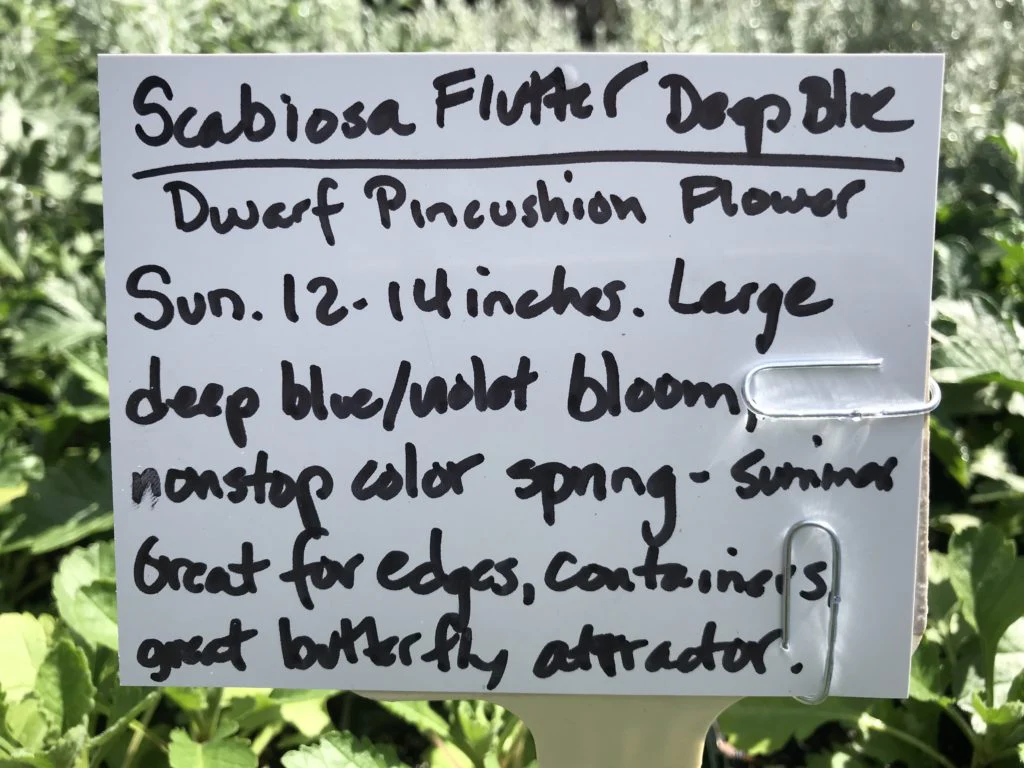 Scabiosa Flutter Deep Blue
Dwarf Pincushion Flower
Sun. 12-14 inches. Large
deep blue/violet bloom,
nonstop color spring - summer
Great for edges, containers,
great butterfly attractor.